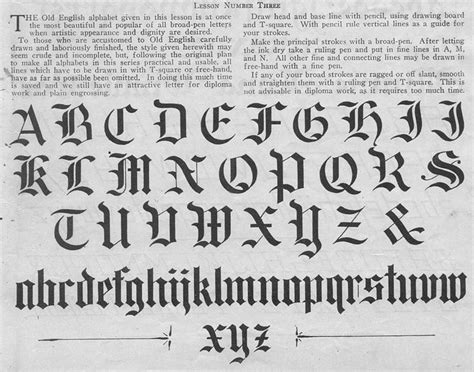 LESSON NUMBER THREE
THE Old English alphabet given in this lesson is at once
the most beautiful and popular of all broad-pen letters
when artistic appearance and dignity are desired.
To those who are accustomed to Old English carefully
drawn and laboriously finished, the style given herewith may
seem crude and incomplete, but, following the original plan
to make all alphabets in this series practical and usable, all
lines which have to be drawn in with T-square or free-hand,
have as far as possible been omitted. In doing this much time
is saved and we still have an attractive letter for diploma
work and plain engrossing.
Draw head and base line with pencil, using drawing board
and T-square. With pencil rule vertical lines as a guide for
your strokes.
Make the principal strokes with a broad-pen. After letting
the ink dry take a ruling pen and put in fine lines in A, M,
and N. All other fine and connecting lines may be drawn in
free-hand with a fine pen.
If any of your broad strokes are ragged or off slant, smooth
and straighten them with a ruling pen and T-square. This is
not advisable in diploma work, as it requires too much time.
A B C D E F G H I J
K L M N O P Q R S
T U V W X Y Z &
abcdefghijklmnopqrstuvw
xyz